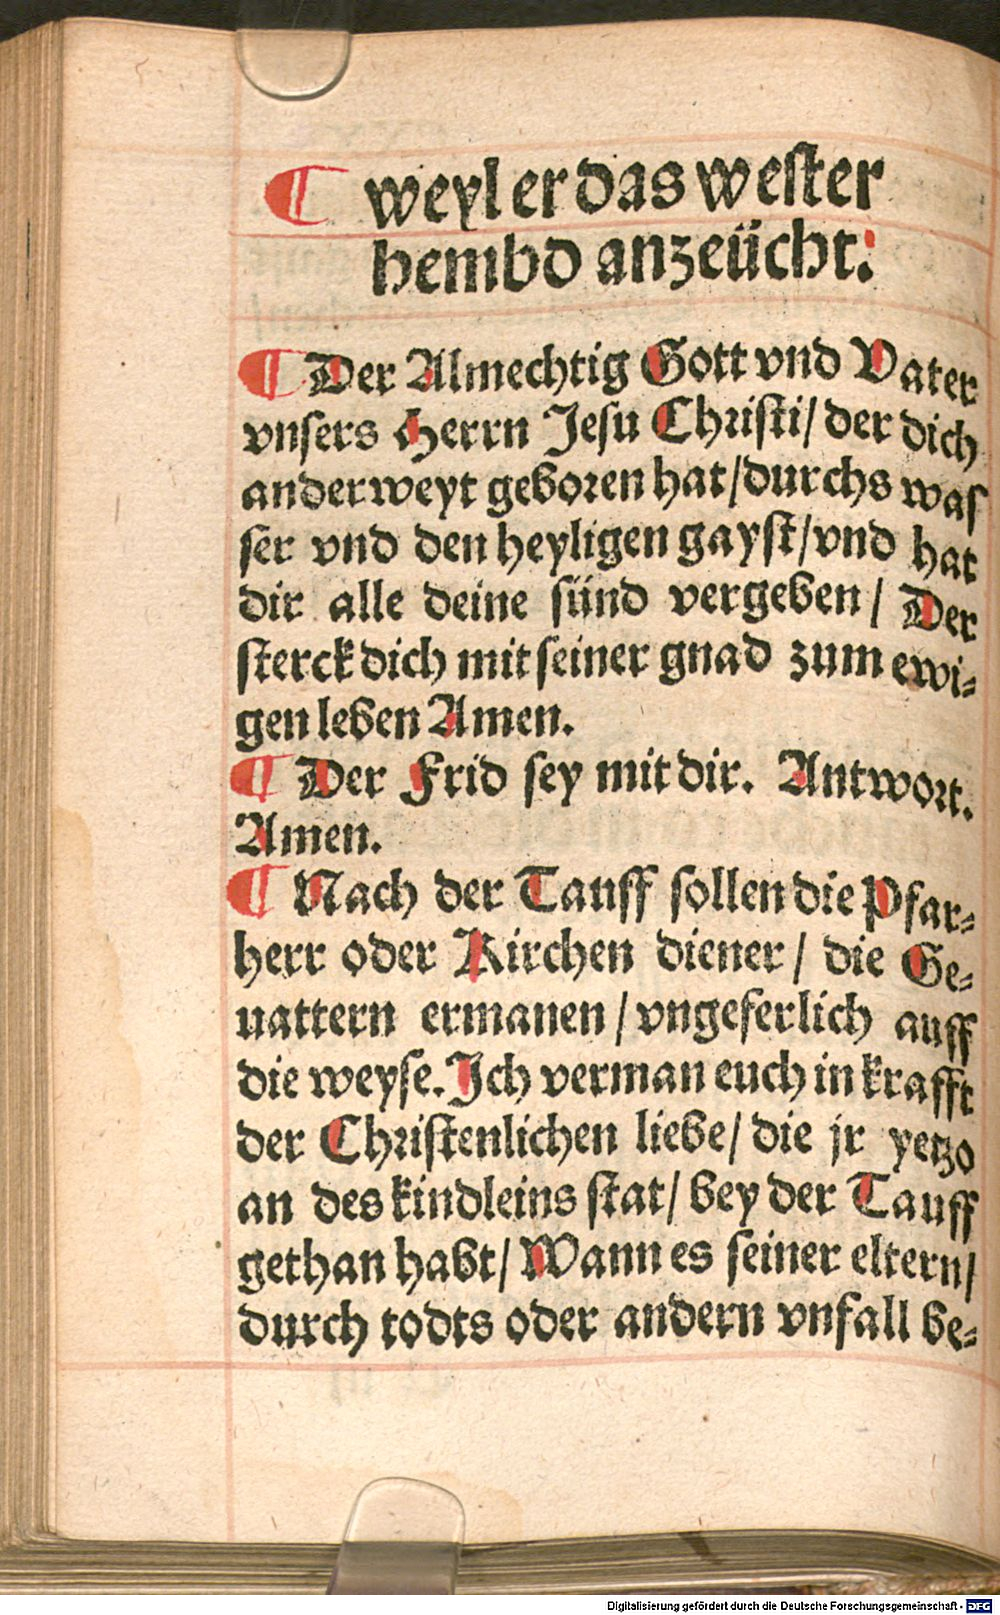 ¶ weyl er das wester
hembd anzeücht:
¶ Der Almechtig Gott vnd Vater
vnsers Herrn Jesu Christi/ der dich
anderweyt geboren hat/durchs was
ser vnd den heyligen gayst/vnd hat
dir alle deine sünd vergeben / Der
sterck dich mit seiner gnad zum ewi-
gen leben Amen.
¶ Der Frid sey mit dir. Antwort.
Amen.
¶ Nach der Tauff sollen die Pfar-
herr oder Kirchen diener / die Ge-
uattern ermanen /vngeferlich auff
die weyse. Ich verman euch in krafft
der Christenlichen liebe/ die jr yetzo
an des kindleins stat/ bey der Tauff
gethan habt/ Wann es seiner eltern/
durch todts oder andern vnfall be-
Digitalisierung gefördert durch die Deutsche Forschungsgemeinschaft - DFG